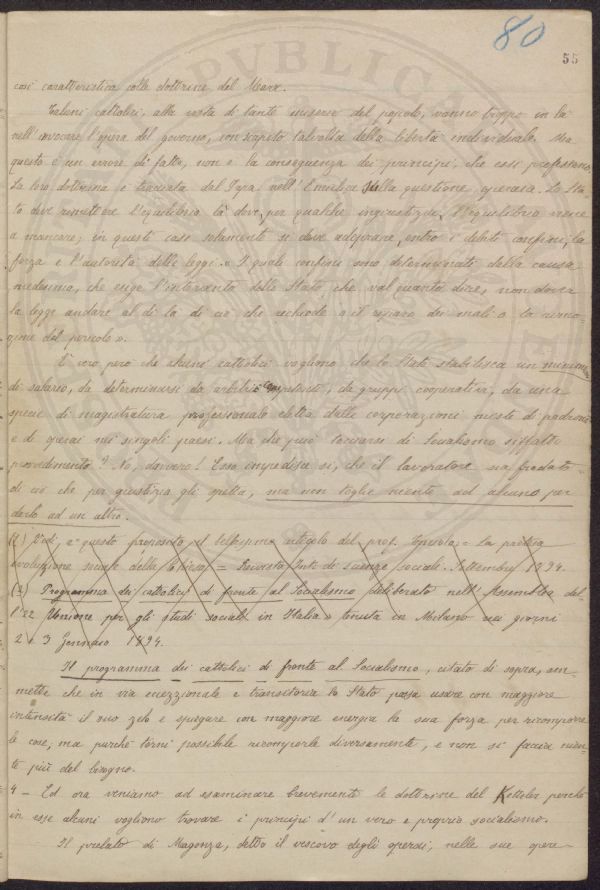 80
55
così caratteristica colle dottrine del Marx.
Taluni cattolici, alla vista di tante miserie del popolo, vanno troppo in là
nell'invocare l'opera del governo, con scapito talvolta della libertà individuale. Ma
questo è un errore di fatto, non è la conseguenza dei principi, che essi professano.
La loro dottrina è tracciata dal Papa nell'Enciclica sulla questione operaia. Lo Sta-
to deve rimettere l'equilibrio là dove, per qualche ingiustizia, l'equilibrio viene
a mancare; in questi casi solamente si deve adoperare, entro i debiti confini, la
forza e l'autorità delle leggi. « I quali confini sono determinati dalla causa
medesima, che esige l'intervento dello Stato che val quanto dire, non dover
la legge andare al di là di ciò che richiede a il riparo dei mali o la rimo-
zione del pericolo ».
È vero però che alcuni cattolici vogliono che lo Stato stabilisca un minimo
di salario, da determinarsi da arbitri competenti, da gruppi cooperativi, da una
specie di magistratura professionale eletta dalle corporazioni miste di padroni
e di operai nei singoli paesi. Ma che può tacciarsi di Socialismo siffatto
provvedimento? No, davvero! Esso impedisce sì, che il lavoratore sia frodato
di ciò che per giustizia gli spetta, ma non toglie niente ad alcuno per
darlo ad un altro.
(1) Ved. a questo proposito il bellissimo articolo del prof. Toniolo = La pretesa
evoluzione sociale della Chiesa = Rivista Int. di scienze sociali. Settembre 1894.
(2) Programma dei cattolici di fronte al Socialismo deliberato nell'Assemblea del-
l'« Unione per gli studi sociali in Italia » tenuta in Milano nei giorni
2 e 3 Gennaio 1894.
Il programma dei cattolici di fronte al Socialismo, citato di sopra, am-
mette che in via eccezzionale e transitoria lo Stato possa usare con maggiore
intensità il suo zelo e spiegare con maggiore energia la sua forza per ricomporre
le cose, ma purchè torni possibile ricomporle diversamente, e non si faccia nien-
te più del bisogno.
4 - Ed ora veniamo ad esaminare brevemente le dottrine del Ketteler perchè
in esse alcuni vogliono trovare i principi d'un vero e proprio socialismo.
Il prelato di Magonza, detto il vescovo degli operai, nelle sue opere